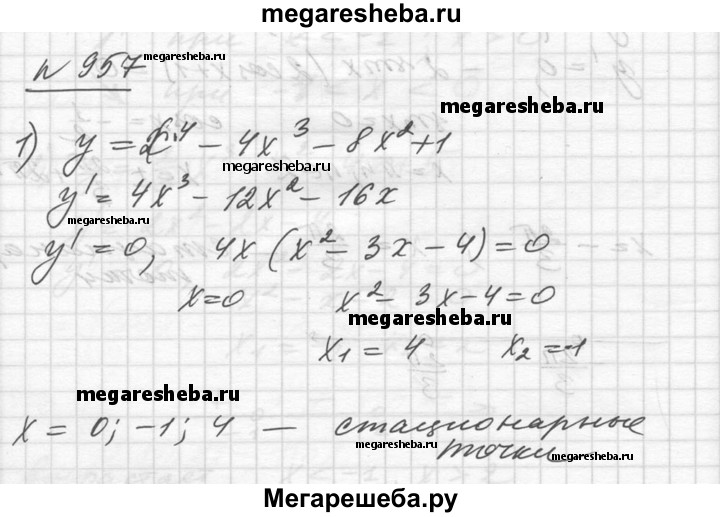 megaresheba.ru
№ 957 megaresheba.ru
megaresheba.ru
1) y = x⁴ - 4x³ - 8x² + 1
megaresheba.ru
y' = 4x³ - 12x² - 16x
megaresheba.ru megaresheba.ru
y' = 0, 4x (x² - 3x - 4) = 0
x = 0 x² - 3x - 4 = 0
megaresheba.ru
x₁ = 4 x₂ = -1
megaresheba.ru
x = 0; -1; 4 — стационарные
megaresheba.ru
точки
megaresheba.ru
Мегарешеба.ру